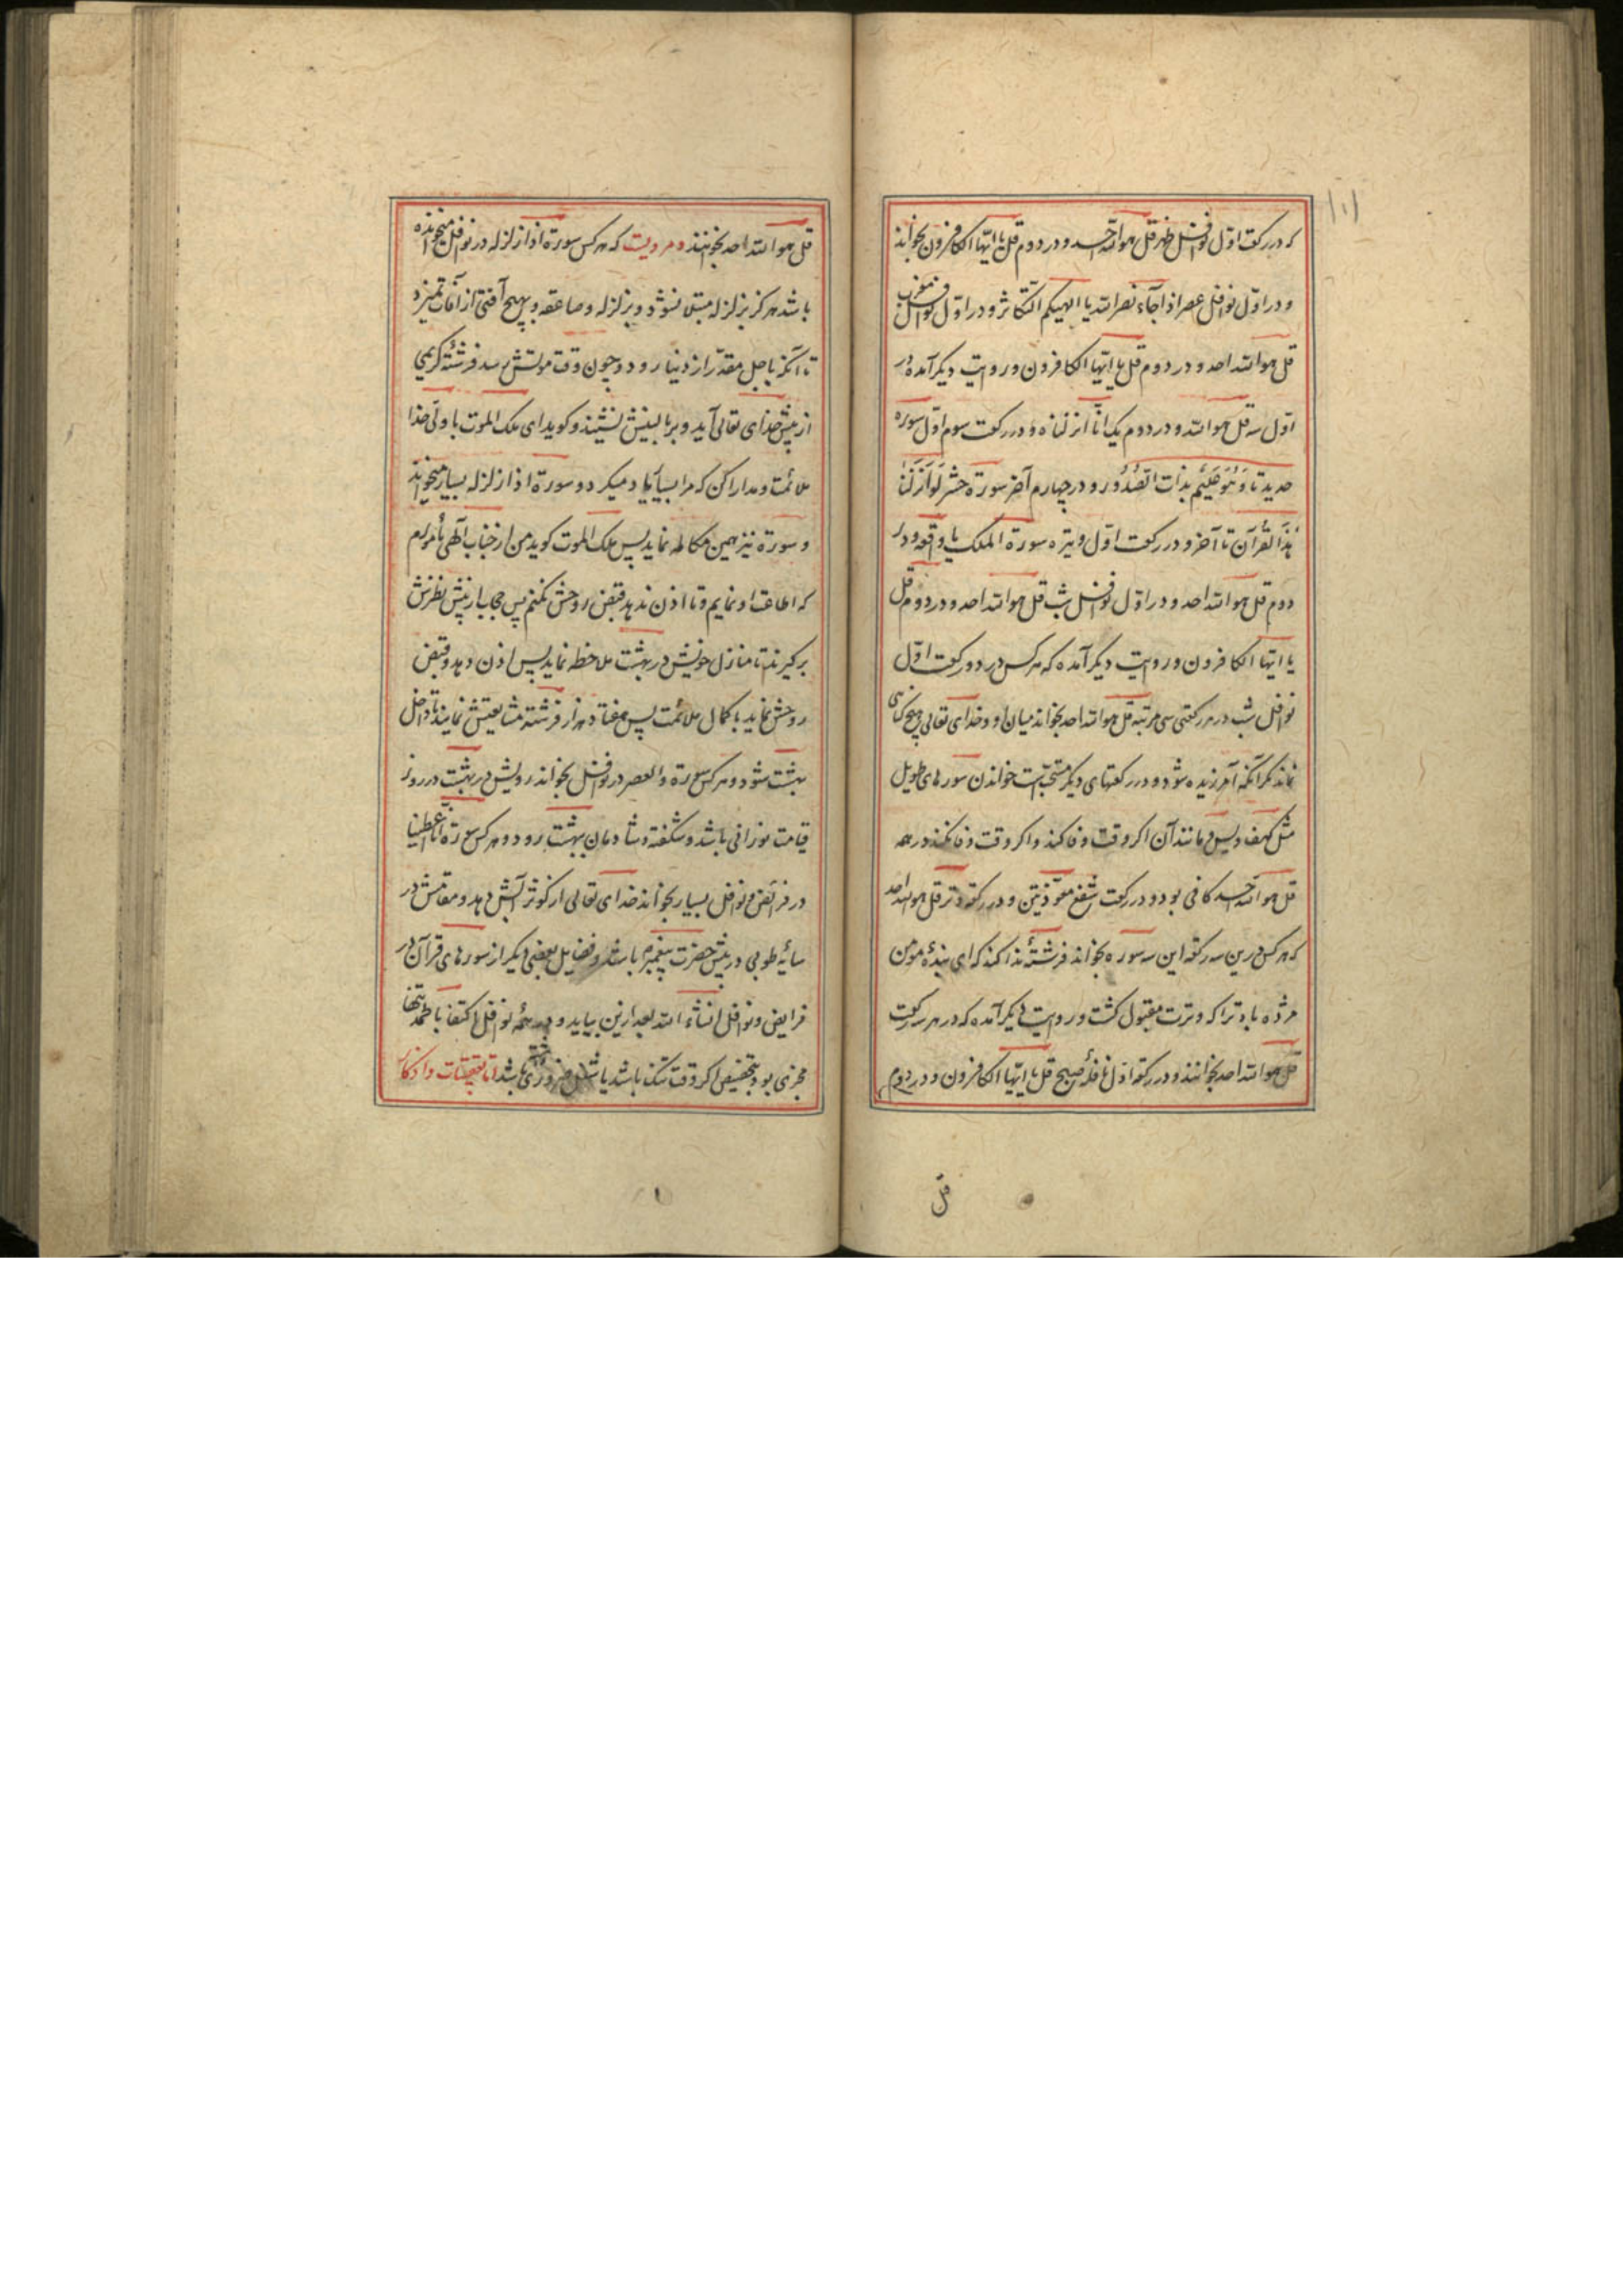 که در رکعت اول نوافل ظهر قل هو الله احد و در دوم قل یا ایها الکافرون بخواند
و در اول نوافل عصر اذا جاء نصر الله یا الهیکم التکاثر و در اول نوافل مغرب
قل هو الله احد و در دوم قل یا ایها الکافرون و روایت دیکر آمده در
اول سه قل هو الله و در دوم یک انا انزلناه و در رکعت سوم اول سوره
حدید تا وَ هُوَ عَلیمٌ بذات الصُّدُور و در چهارم آخر سورة حشر لَو اَنزَلنا
هذَا القُرآن تا آخر و در رکعت اول وتیره سورة الملک یا واقعه و در
دوم قل هو الله احد و در اول نوافل شب قل هو الله احد و در دوم قل
یا ایها الکافرون و روایت دیکر آمده که هر کس در دو رکعت اول
نوافل شب در هر رکعتی سی مرتبه قل هو الله احد بخواند میان او و خدای تعالی هیچ کناهی
نماند مکر آنکه آمرزیده شود و در رکعتهای دیکر مستحبّ است خواندن سورهای طویل
مثل کهف و یس و مانند آن اکر وقت وفا کند و اکر وقت وفا نکند در همه
قل هو الله احد کافی بود و در رکعت شفع معوّذتین و در رکعة وتر قل هو الله احد
که هر کس درین سه رکعة این سه سوره بخواند فرشتهٔ ندا کند که ای بندهٔ مومن
مژده باد ترا که وترت مقبول کشت و روایت دیکر آمده که در هر سه رکعت
قل هو الله احد بخوانند و در رکعة اول نافلهٔ صبح قل یا ایها الکافرون و در دوم
قل
قل هو الله احد بخوانند و مرویست که هر کس سورة اذا زلزله در نوافل میخوانده
باشد هرکز بزلزله مبتلا نشود و بزلزله و صاعقه و بهیچ آفتی از آفات نمیرد
تا آنکه باجل مقدّر از دنیا رود و چون وقت موتش رسد فرشتهٔ کریمی
از پیش خدای تعالی آید و بر بالینش نشیند و کوید ای ملک الموت با ولی خدا
ملائمت و مدارا کن که مرا بسیار یاد میکرد و سورة اذا زلزله بسیار میخواند
و سورة نیز همین مکالمه نماید پس ملک الموت کوید من از جناب الهی مامورم
که اطاعت او نمایم و تا اذن ندهد قبض روحش نکنم پس حجاب از پیش نظرش
برکیرند تا منازل خویش در بهشت ملاحظه نماید پس اذن دهد و قبض
روحش نماید با کمال ملائمت پس هفتاد هزار فرشته مشایعتش نمایند تا داخل
بهشت شود و هر کس سورة والعصر در نوافل بخواند رویش در بهشت در روز
قیامت نورانی باشد و شکفته و شادمان ببهشت رود و هر کس سورة انا اعطینا
در فرائض و نوافل بسیار بخواند خدای تعالی از کوثر آبش دهد و مقامش در
سایهٔ طوبی در پیش حضرت پیغمبر باشد و فضایل بعضی دیکر از سورهای قرآن در
فرایض و نوافل انشاء الله بعد ازین بیاید و در همهٔ نوافل اکتفا با حمد تنها
مجزی بود بتخصیص اکر وقت تنک باشد یا شغل ضروری باشد اما تعقیبات و اذکار